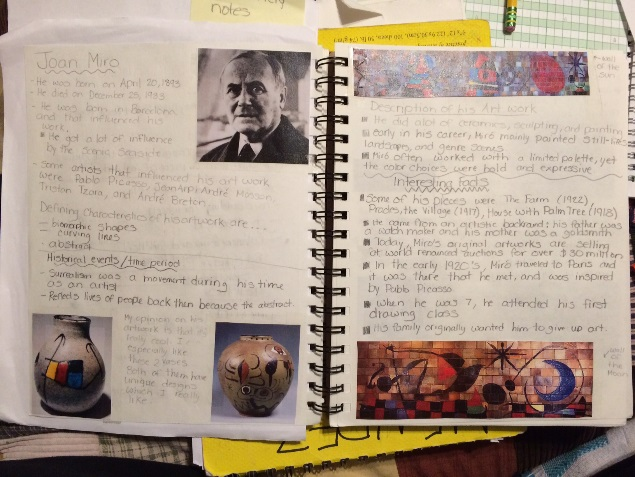 notes
Joan Miró
- He was born on April 20, 1893
- He died on December 25, 1983
- He was born in Barcelona
and that influenced his
work.
He got a lot of influence
by the Scenic Seaside
- Some artists that influenced his art work
were Pablo Picasso, Jean Arp, André Masson,
Tristan Tzara, and André Breton.
Defining Characteristics of his artwork are...
- biomorphic shapes
- curving lines
- abstract
Historical events/time period
- Surrealism was a movement during his time
as an artist
- Reflects lives of people back then because the abstract.
My opinion on his
artwork is that its
really cool. I
especially like
these vases.
Both of them have
unique designs
which I really
like.
wall
of the
Sun
Description of his Art work
He did alot of ceramics, sculpting, and painting
early in his career, Miró mainly painted still-lifes,
landscapes, and genre scenes
Miró often worked with a limited palette, yet
the color choices were bold and expressive
Interesting facts
Some of his pieces were The Farm (1922)
Prades, the Village (1917), House with Palm Tree (1918)
He came from an artistic background; his father was
a watch maker and his mother was a goldsmith
Today, Miró's original artworks are selling
at world renowned auctions for over $30 million
In the early 1920's, Miró traveled to Paris and
it was there that he met, and was inspired
by Pablo Picasso
when he was 7, he attended his first
drawing class
His family originally wanted him to give up art.
wall
of the
Moon